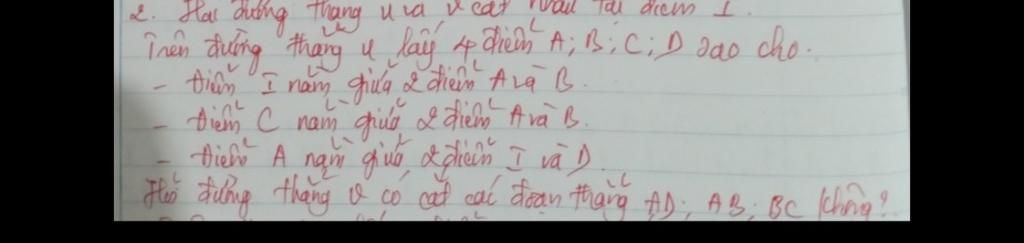 2. Hai đường thẳng u và v cắt nhau tại điểm I.
Trên đường thẳng u lấy 4 điểm A; B; C; D sao cho.
- Điểm I nằm giữa 2 điểm A và B.
- Điểm C nằm giữa 2 điểm A và B.
- Điểm A nằm giữa 2 điểm I và D.
Hỏi đường thẳng v có cắt các đoạn thẳng AD; AB; BC không?